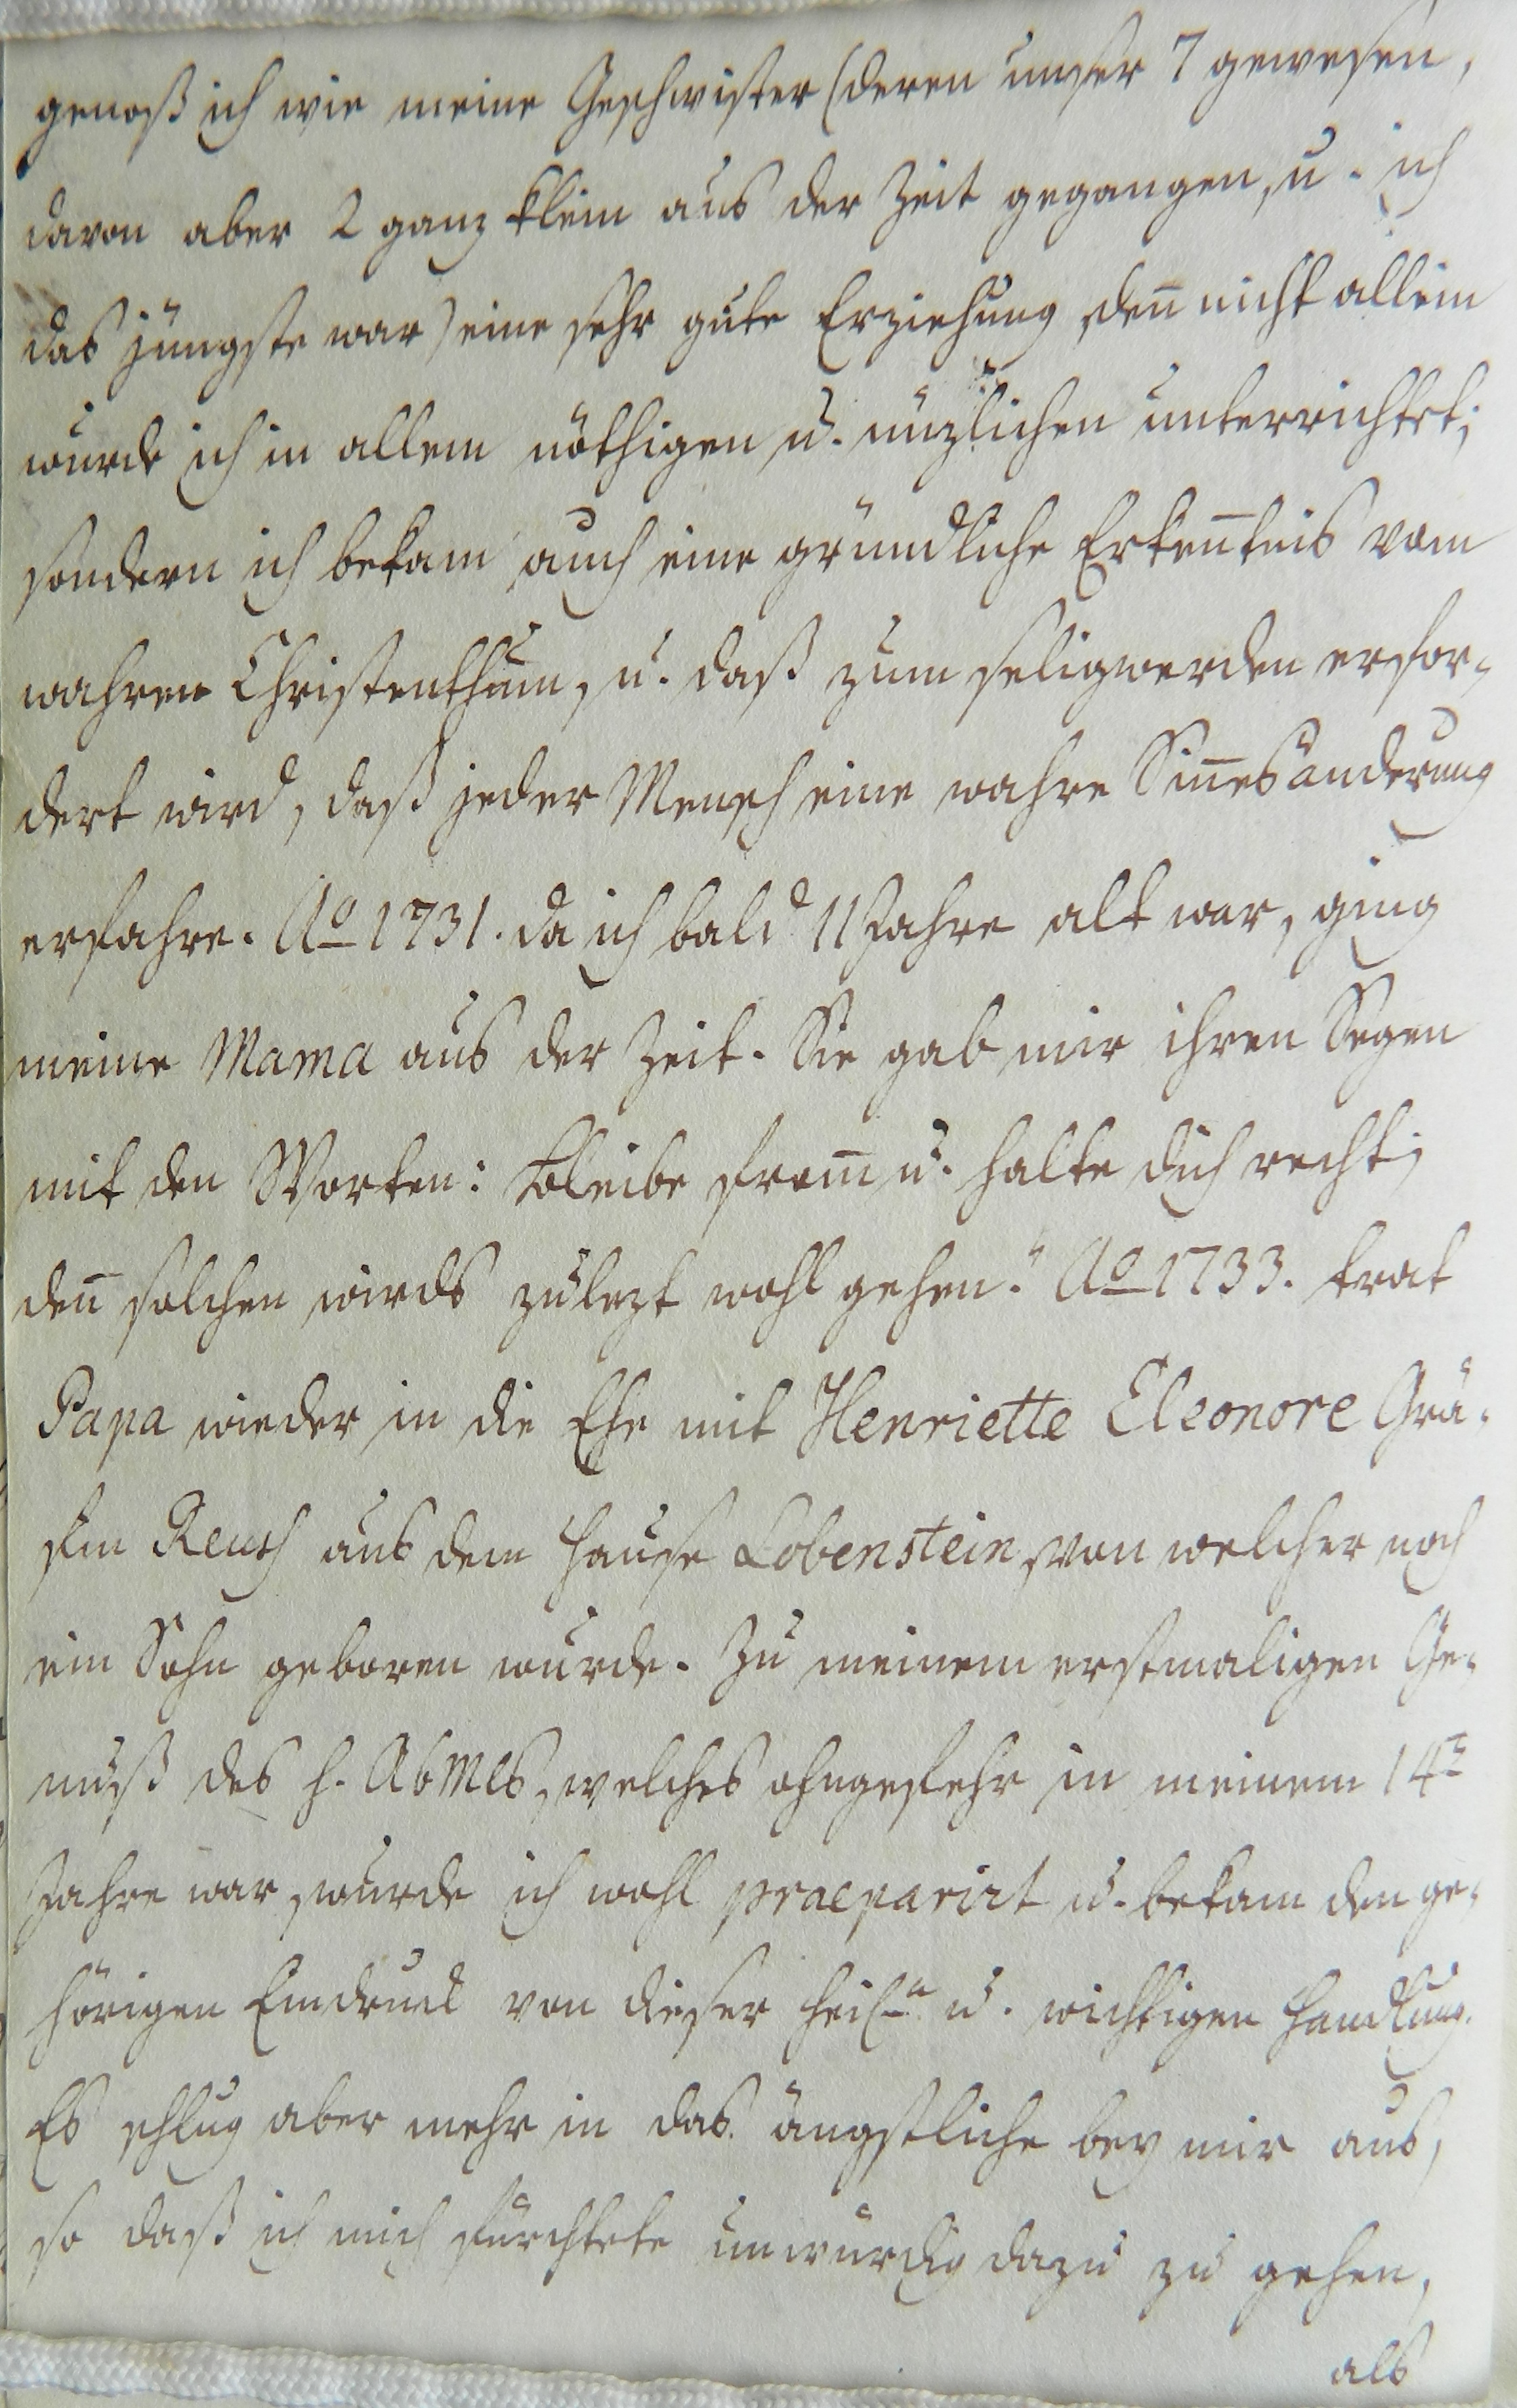 genoß ich wie meine Geschwister (deren unser 7 gewesen,
davon aber 2 ganz klein aus der Zeit gegangen, u. ich
das jüngste war) eine sehr gute Erziehung, den̄ nicht allein
wurde ich in allem nöthigen u. nüzlichen unterrichtet;
sondern ich bekam auch eine gründliche Erken̄tnis vom
wahren Christenthum, u. daß zum seligwerden erfor-
dert wird, daß jeder Mensch eine wahre Sin̄esänderung
erfahre. Ao 1731. da ich bald 11 Jahre alt war, ging
meine Mama aus der Zeit. Sie gab mir ihren Segen
mit den Worten: bleibe from̄ u. halte dich recht;
den̄ solchen wirds zulezt wohl gehen." Ao 1733. trat
Papa wieder in die Ehe mit Henriette Eleonore Grä-
fin Reuß aus dem Hause Lobenstein, von welcher noch
ein Sohn geboren wurde. Zu meinem erstmaligen Ge-
nuß des h. AbMls, welches ohngefehr in meinem 14n
Jahre war, wurde ich wohl praeparirt u. bekam den ge-
hörigen Eindruck von dieser heil-n u. wichtigen Handlung.
Es schlug aber mehr in das ängstliche bey mir aus,
so daß ich mich fürchtete unwürdig dazu zu gehen,
als